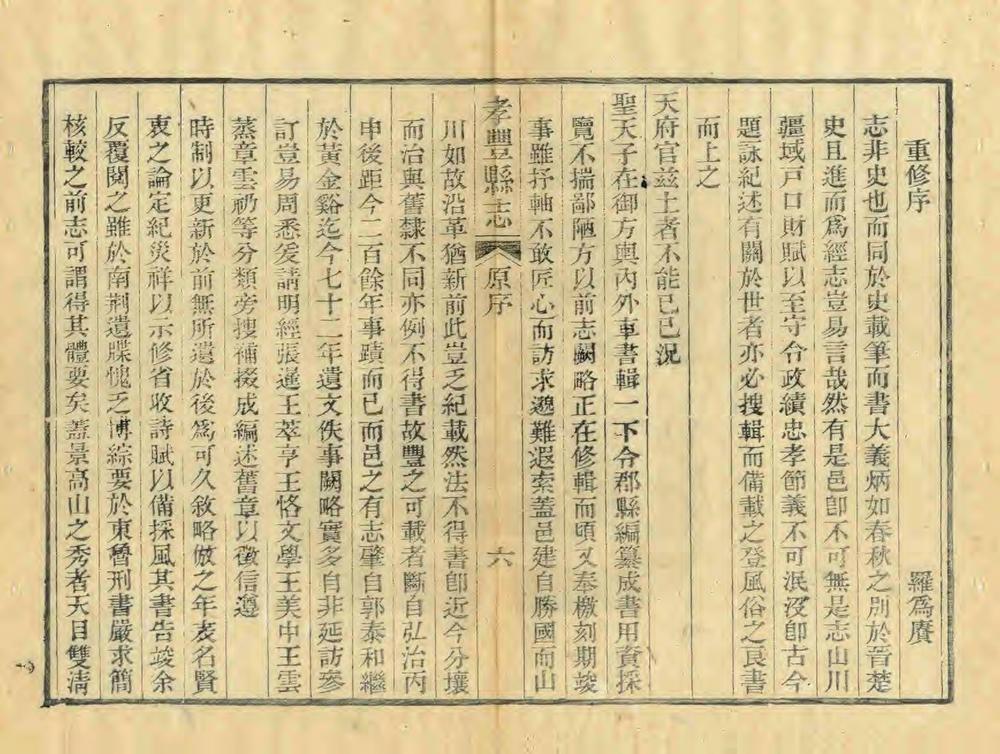 重修序 羅爲賡
志非史也而同於史載筆而書大義炳如春秋之別於晉楚
史且進而爲經志豈易言哉然有是邑卽不可無是志山川
疆域戸口財賦以至守令政績忠孝節義不可泯沒卽古今
題詠紀述有關於世者亦必搜輯而備載之登風俗之良書
而上之
天府官兹土者不能已已況
聖天子在御方輿內外車書輯一下令郡縣編纂成書用資採
覽不揣鄙陋方以前志闕略正在修輯而頃又奉檄刻期竣
事雖抒軸不敢匠心而訪求邈難遐索蓋邑建自勝國而山
孝豐縣志 原序 六
川如故沿革猶新前此豈乏紀載然法不得書卽近今分壤
而治與舊隸不同亦例不得書故豐之可載者斷自弘治丙
申後距今二百餘年事蹟而已而邑之有志肇自郭泰和繼
於黃金谿迄今七十二年遺文佚事闕略實多自非延訪參
訂豈易周悉爰請明經張暹王萃亨王恪文學王美中王雲
蒸章雲礽等分類旁搜補掇成編述舊章以徵信遵
時制以更新於前無所遺於後爲可久敘略倣之年表名賢
衷之論定紀災祥以示修省收詩賦以備採風其書告竣余
反覆閱之雖於南荆遺牒愧乏博綜要於東魯刑書嚴求簡
核較之前志可謂得其體要矣蓋景高山之秀者天目雙淸